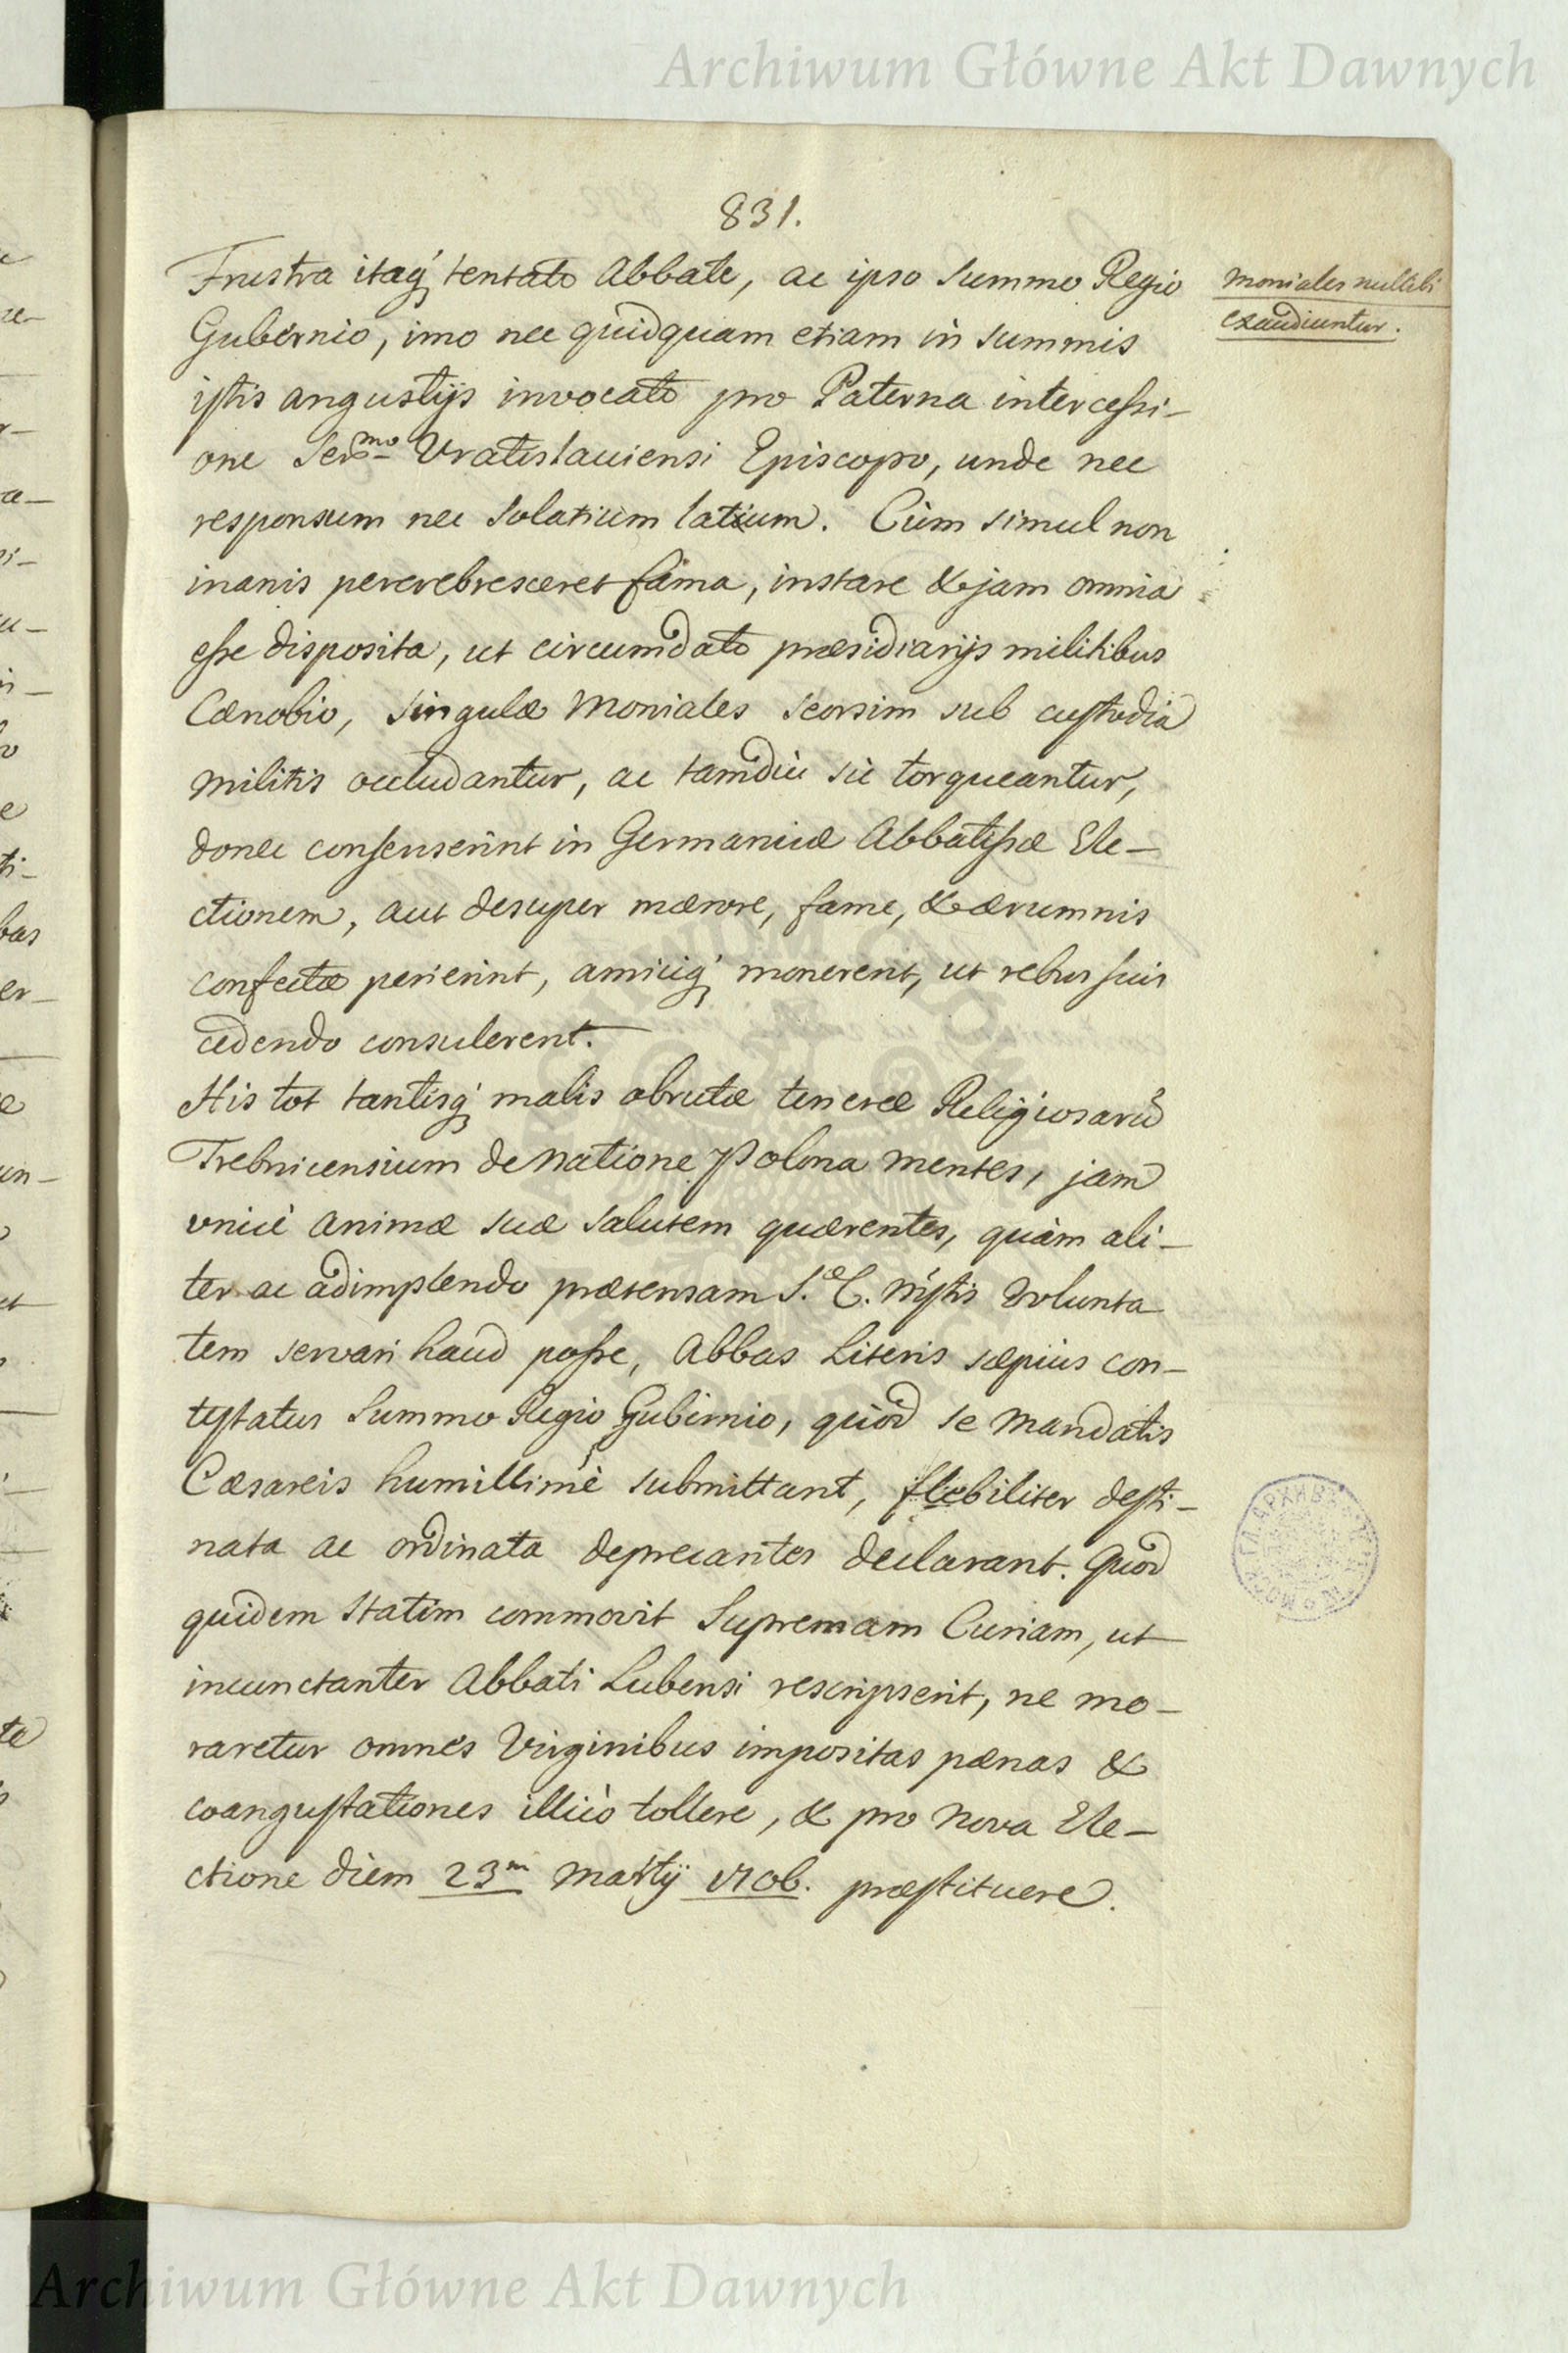 Archiwum Główne Akt Dawnych
831.
Frustra itaq́ tentato Abbate, ac ipso Summo Regio
Gubernio, imo nec quidquam etiam in summis
istis angustijs invocato pro Paterna intercessi-
one Sermo Vratislaviensi Episcopo, unde nec
responsum nec solatium latum. Cùm simul non
inanis percrebresceret fama, instare & jam omnia
esse disposita, ut circumdato præsidiarijs militibus
Cænobio, singulæ Moniales seorsim sub custodia
militis occludantur, ac tamdiu sic torqueantur,
donec consenserint in Germanicæ Abbatissæ Ele-
ctionem, aut desuper mærore, fame, & ærumnis
confectæ perierint, amiciq́ monerent, ut rebus suis
cedendo consulerent.
His tot tantisq́ malis obrutæ teneræ Religiosarũ
Trebnicensium de Natione Polona mentes, jam
unicè animæ suæ salutem quærentes, quàm ali-
ter ac adimplendo prætensam S.æ C. Mṡtis volunta
tem servari haud posse, Abbas Literis sæpius con-
testatus Summo Regio Gubernio, quòd se mandatis
Cæsareis humillimè submittant, flebiliter desti-
nata ac ordinata deprecantes declarant. Quod
quidem statim commovit Supremam Curiam, ut
incunctanter Abbati Lubensi rescripserit, ne mo-
raretur omnes Virginibus impositas pænas &
coangustationes illicò tollere, & pro nova Ele-
ctione diem 23m Martij 1706. præstituere.
Moniales nullibi
exaudiuntur.
Archiwum Główne Akt Dawnych